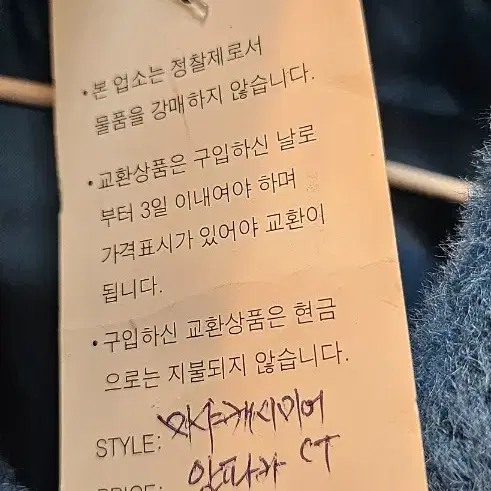 • 본 업소는 정찰제로서
물품을 강매하지 않습니다.
• 교환상품은 구입하신 날로
부터 3일 이내여야 하며
가격표시가 있어야 교환이
됩니다.
• 구입하신 교환상품은 현금
으로는 지불되지 않습니다.
STYLE: 캐시미어
PRICE: 알파카 CT